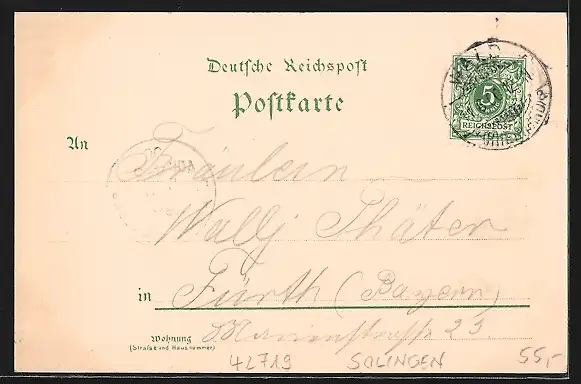 Deutsche Reichspost
Postkarte
WALD
5
REICHSPOST
An
Fräulein
Wally Thäter
in Fürth (Bayern)
Marienstrasse 23
Wohnung
(Straße und Hausnummer)
42719 SOLINGEN 55,-